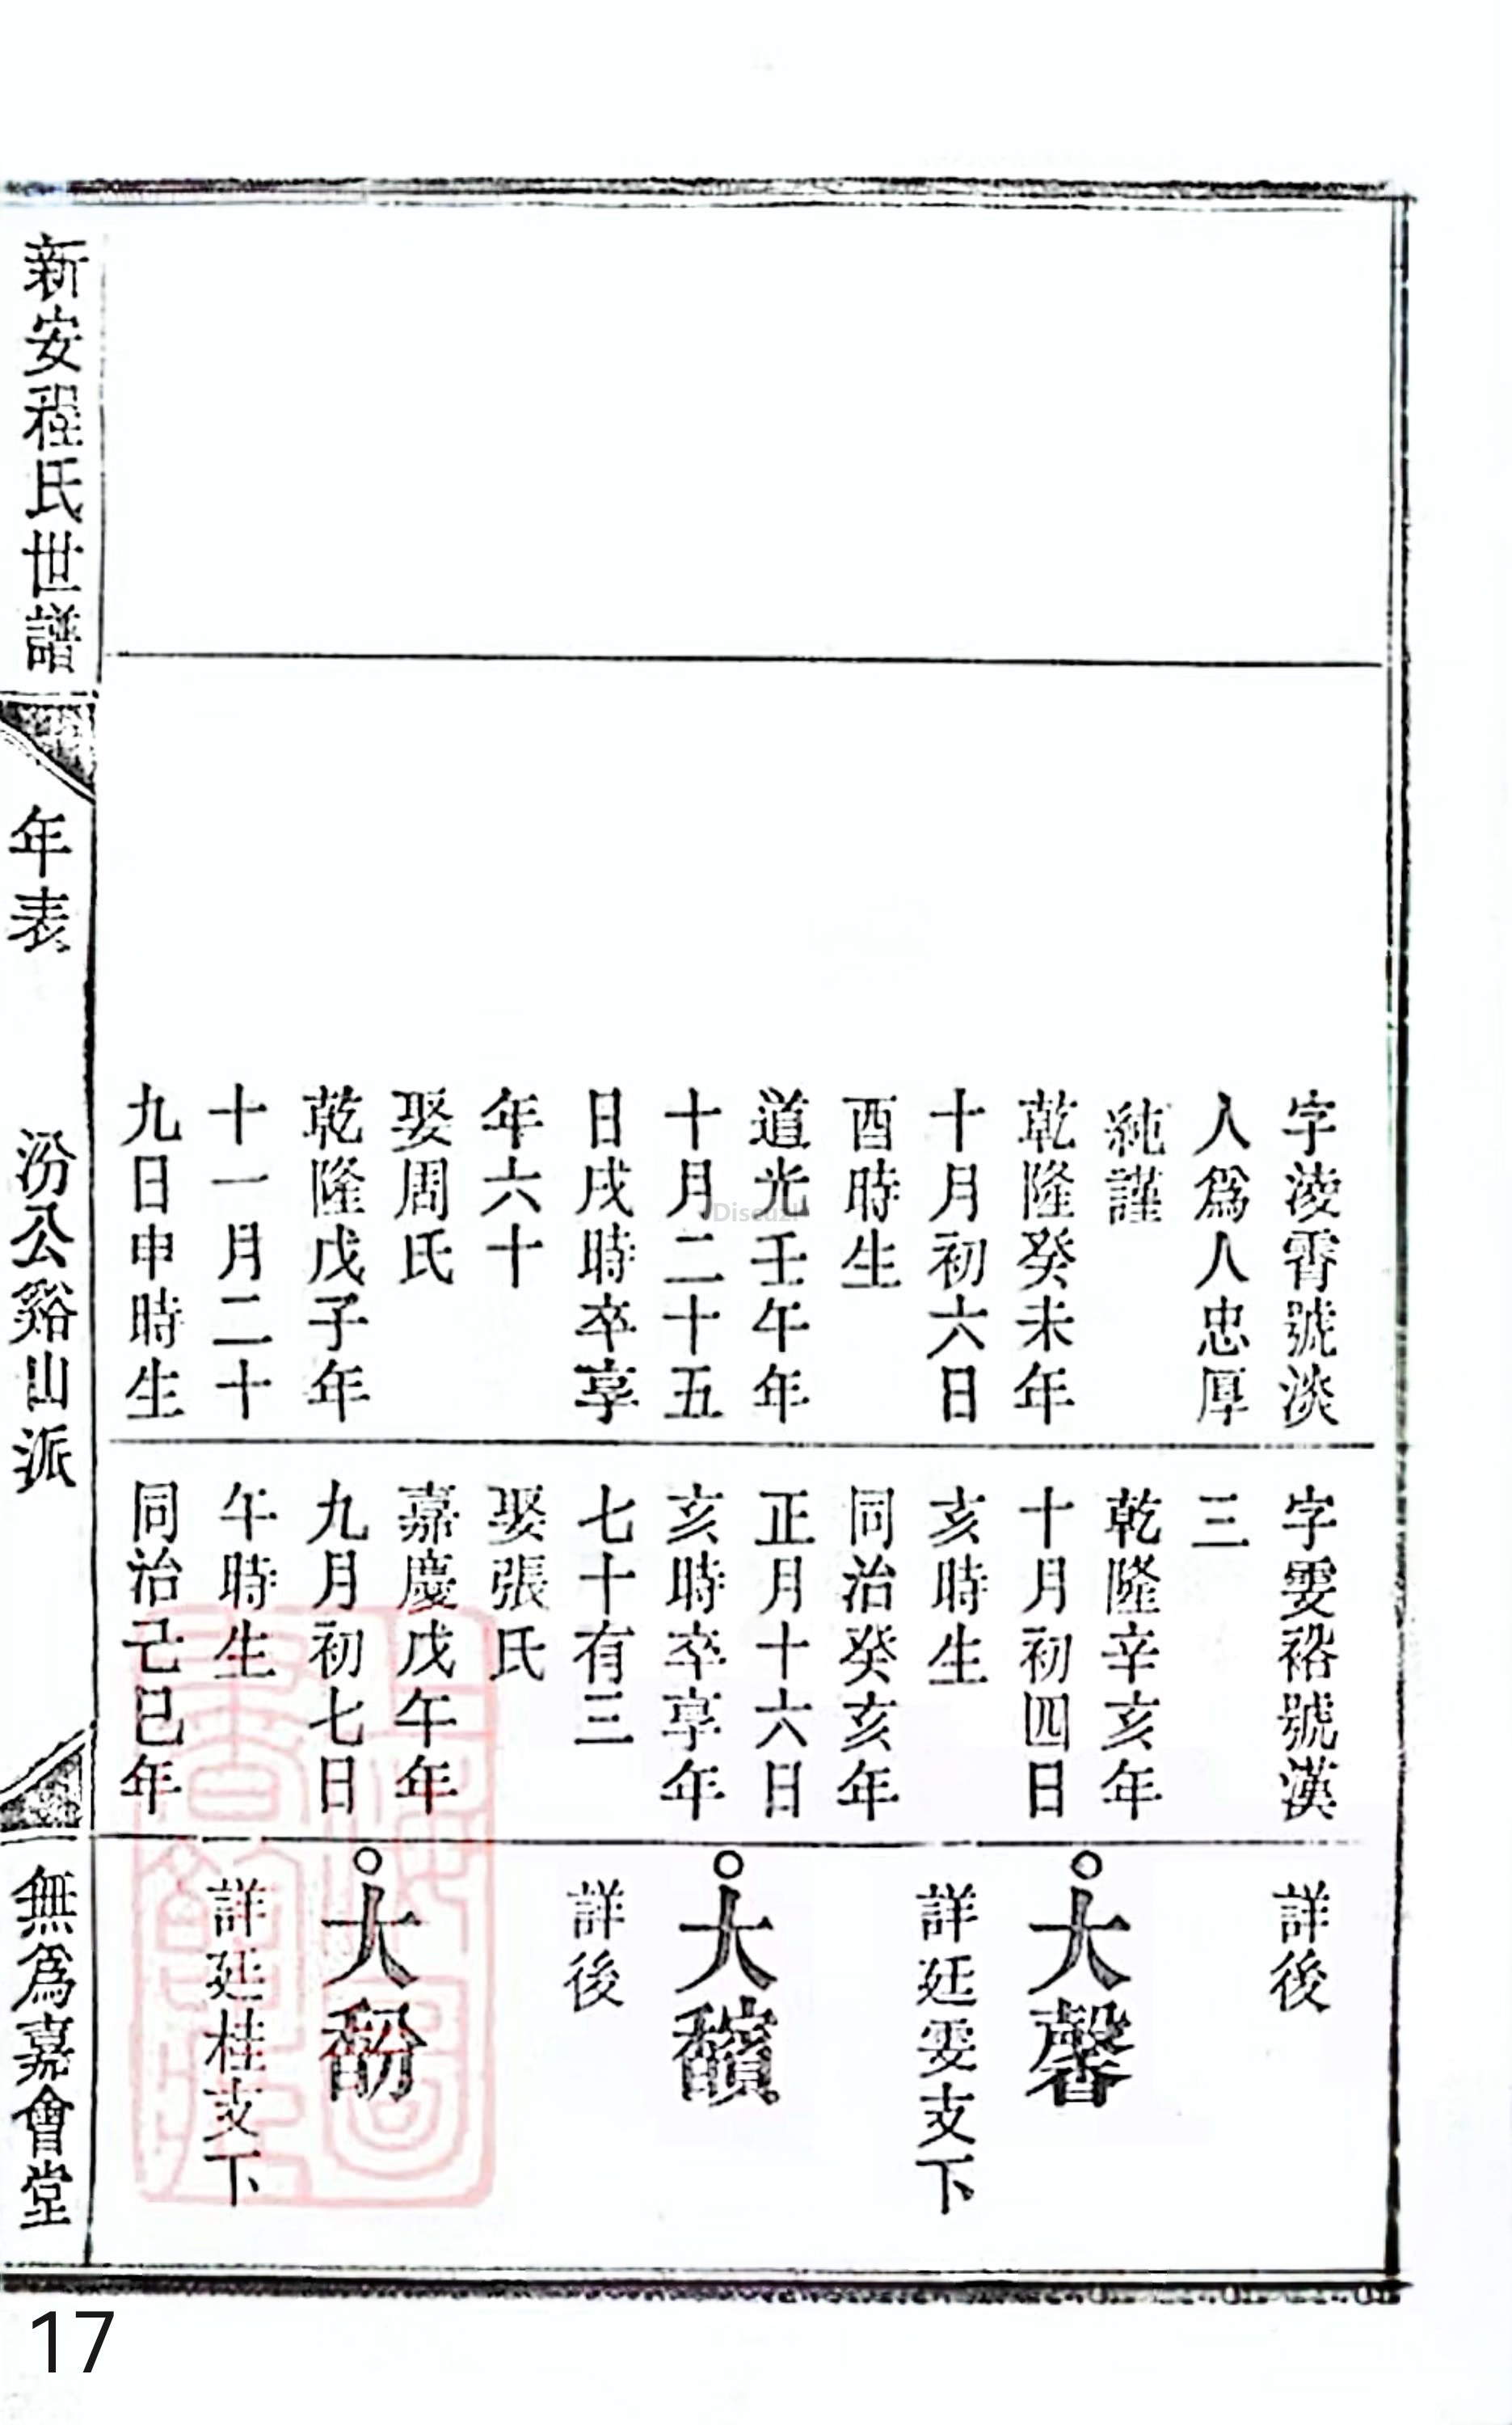 字淩霄號淡
人爲人忠厚
純謹
乾隆癸未年
十月初六日
酉時生
道光壬午年
十月二十五
日戌時卒享
年六十
娶周氏
乾隆戊子年
十一月二十
九日申時生
字雯裕號漢
三
乾隆辛亥年
十月初四日
亥時生
同治癸亥年
正月十六日
亥時卒享年
七十有三
娶張氏
嘉慶戊午年
九月初七日
午時生
同治己巳年
詳後
大馨
詳廷雯支下
大馪
詳後
大馚
詳廷桂支下
新安程氏世譜
年表
汾公谿山派
無爲嘉會堂
Discuz!
17